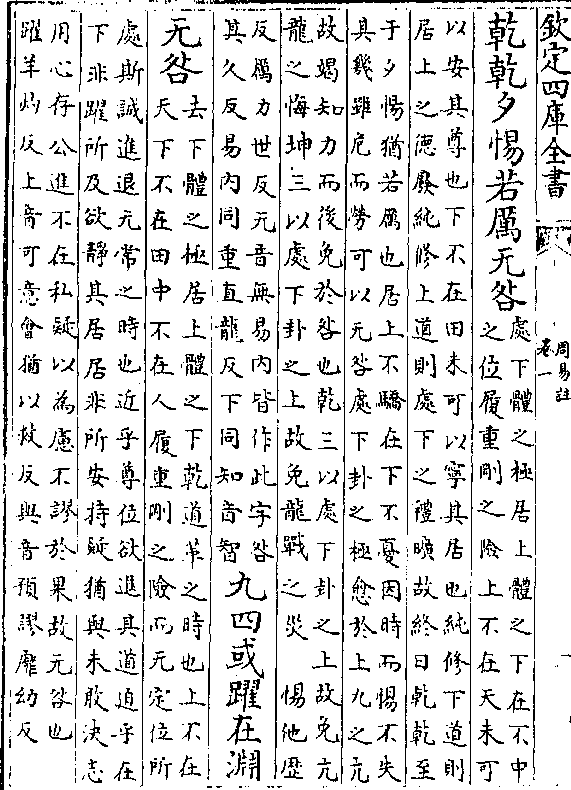 欽定四庫全書
周易註
卷一
乾乾夕惕若厲无咎
處下體之極居上體之下在不中
之位履重剛之險上不在天未可
以安其尊也下不在田未可以寧其居也純修下道則
居上之德廢純修上道則處下之禮曠故終日乾乾至
于夕惕猶若厲也居上不驕在下不憂因時而惕不失
其幾雖危而勞可以无咎處下卦之極愈於上九之亢
故竭知力而後免於咎也乾三以處下卦之上故免亢
龍之悔坤三以處下卦之上故免龍戰之災 惕他歴
反厲力世反无音無易内皆作此字咎
其久反易内同重直龍反下同知音智
九四或躍在淵
无咎
去下體之極居上體之下乾道革之時也上不在
天下不在田中不在人履重剛之險而无定位所
處斯誠進退无常之時也近乎尊位欲進其道迫乎在
下非躍所及欲靜其居居非所安持疑猶與未敢決志
用心存公進不在私疑以為慮不謬於果故无咎也
躍羊灼反上音可意會猶以救反與音預謬靡幼反